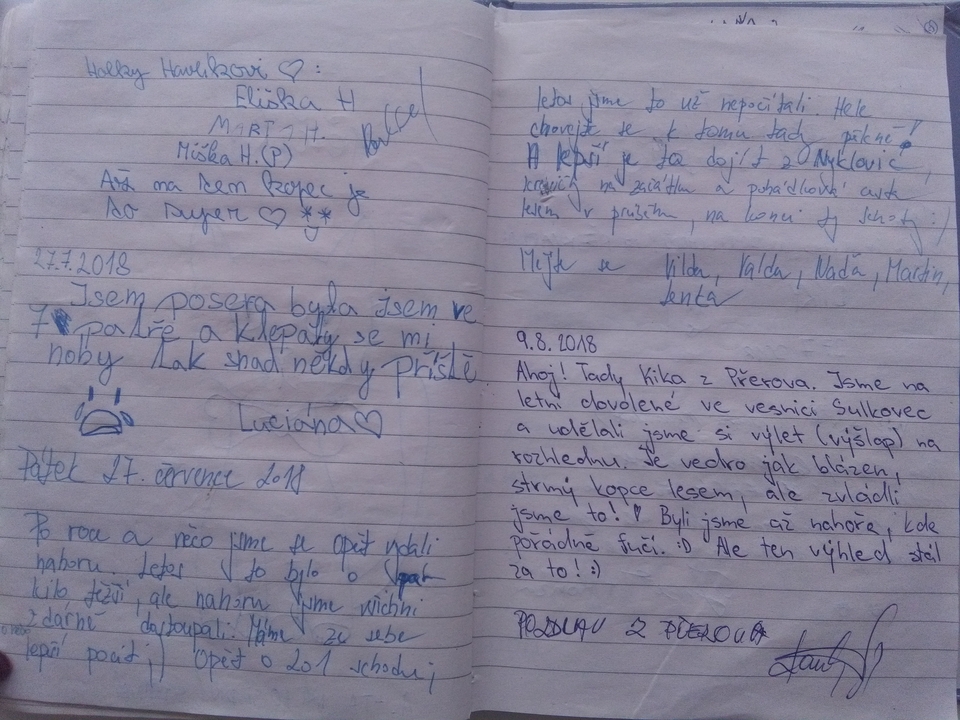 Holky Havlíkovi ♡ :
Eliška H
MARTA H.
Miška H. (P)
Až na ten kopec je
to super ♡
27.7.2018
Jsem posera byla jsem ve
7 patře a klepaly se mi
nohy tak snad někdy příště
Luciána ♡
Pátek 27. července 2018
Po roce a něco jsme se opět vydali
nahoru. Letos to bylo o pár
kilo težší, ale nahoru jsme všichni
zdárně dostoupali. Máme ze sebe
lepší pocit ;) Opět o 201 schodu,
letos jsme to už nepočítali. Hele
chovejte se k tomu tady pěkně!
A lepší je to dojít z Nyklovic,
na začátku a pohádková cesta
lesem v průběhu, na konci ty schody :)
Mějte se Vilda, Valda, Naďa, Martin,
Jenta
9.8.2018
Ahoj! Tady Kika z Přerova. Jsme na
letní dovolené ve vesnici Sulkovec
a udělali jsme si výlet (výšlap) na
rozhlednu. Je vedro jak blázen,
strmý kopce lesem, ale zvládli
jsme to! Byli jsme až nahoře, kde
pořádně fučí. :D Ale ten výhled stál
za to! :)
POZDRAV Z PŘEROVA